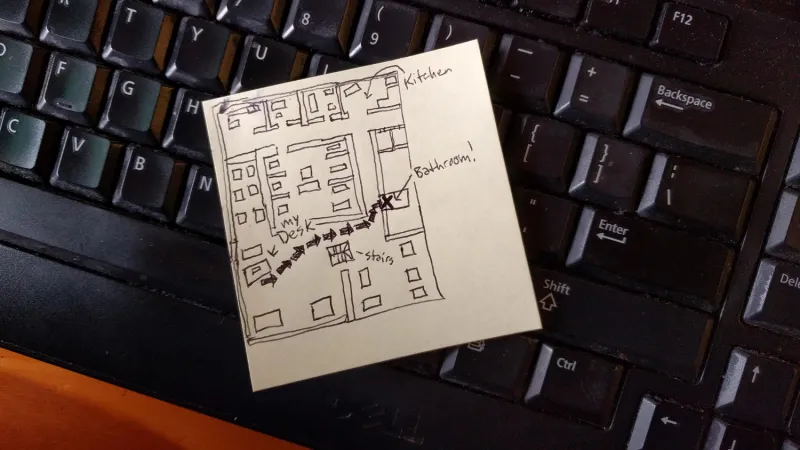 Kitchen
Bathroom!
my
Desk
Stairs
R T Y U 8 ( 9 ) F12
D F G H – - + = Backspace
C V B N { [ } ] | \
" ' Enter
Shift Dele
Ctrl